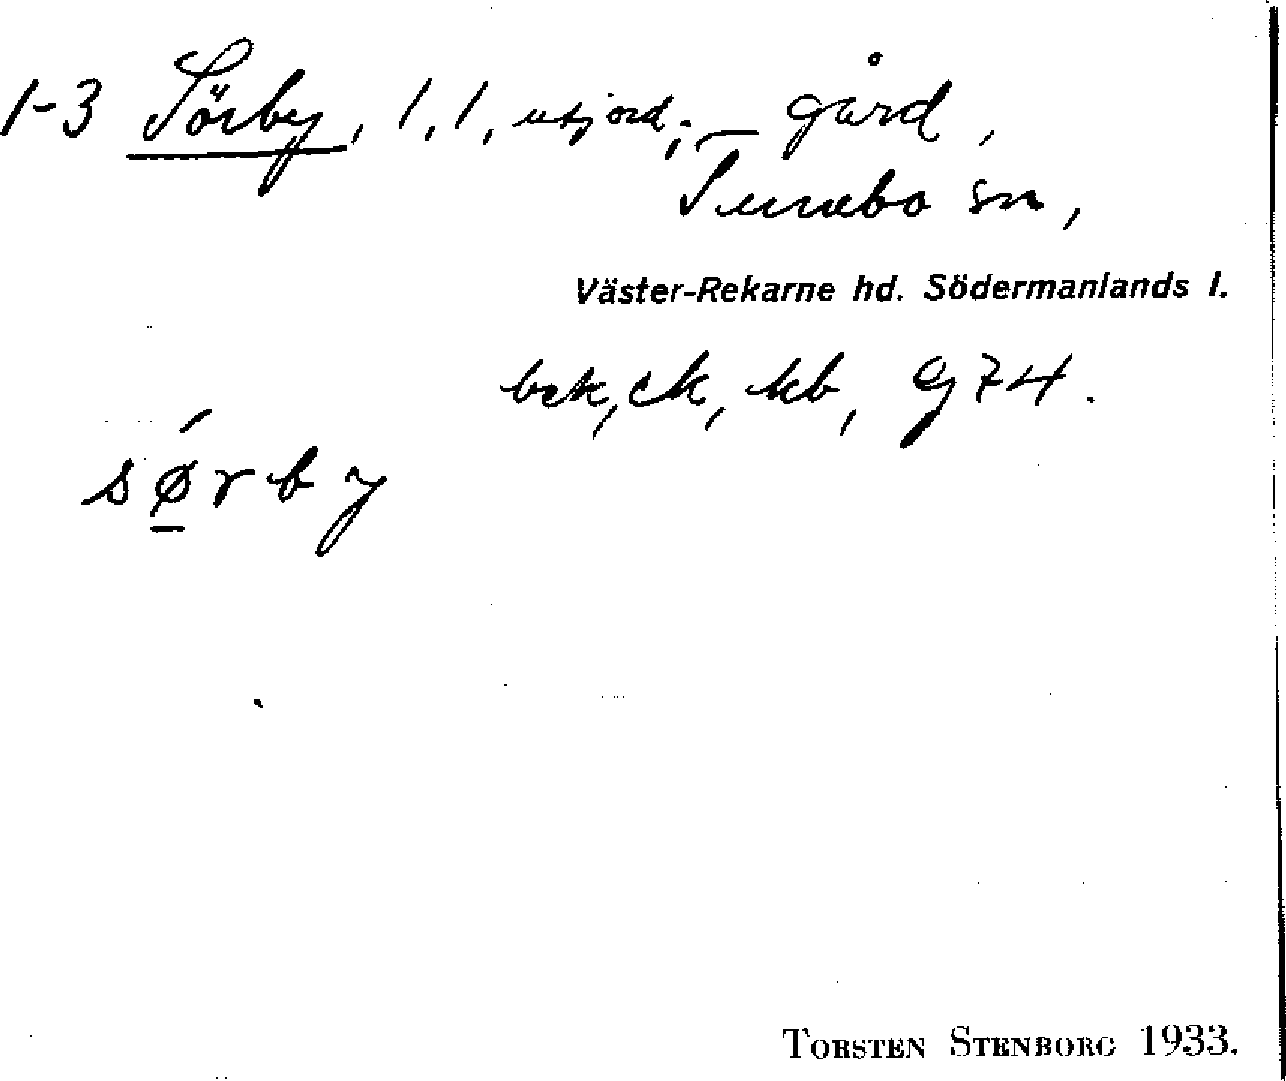 1-3 Sörby, 1, 1, utjord; gård,
Tumbo sn,
Väster-Rekarne hd. Södermanlands l.
bek, ek, kb, G 74.
sǿ̱rby
TORSTEN STENBORG 1933.